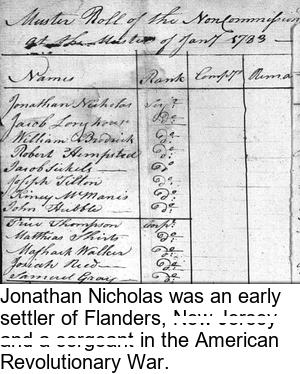 Muster Roll of the NonCommission
at the Muster of Jany 1783
Names Rank Compy Remar
Jonathan Nicholas Sergt
Jacob Longhour Do
William Brodrick Do
Robert Hempsted Do
Jacob Sickels Do
Joseph Tilton Do
Kinsey McManis Do
John Hubble Do
Thompson Corpl
Matthias Shirts Do
Walker Do
Josiah Do
Samuel Gray Do
Jonathan Nicholas was an early
settler of Flanders, New Jersey
and a sergeant in the American
Revolutionary War.